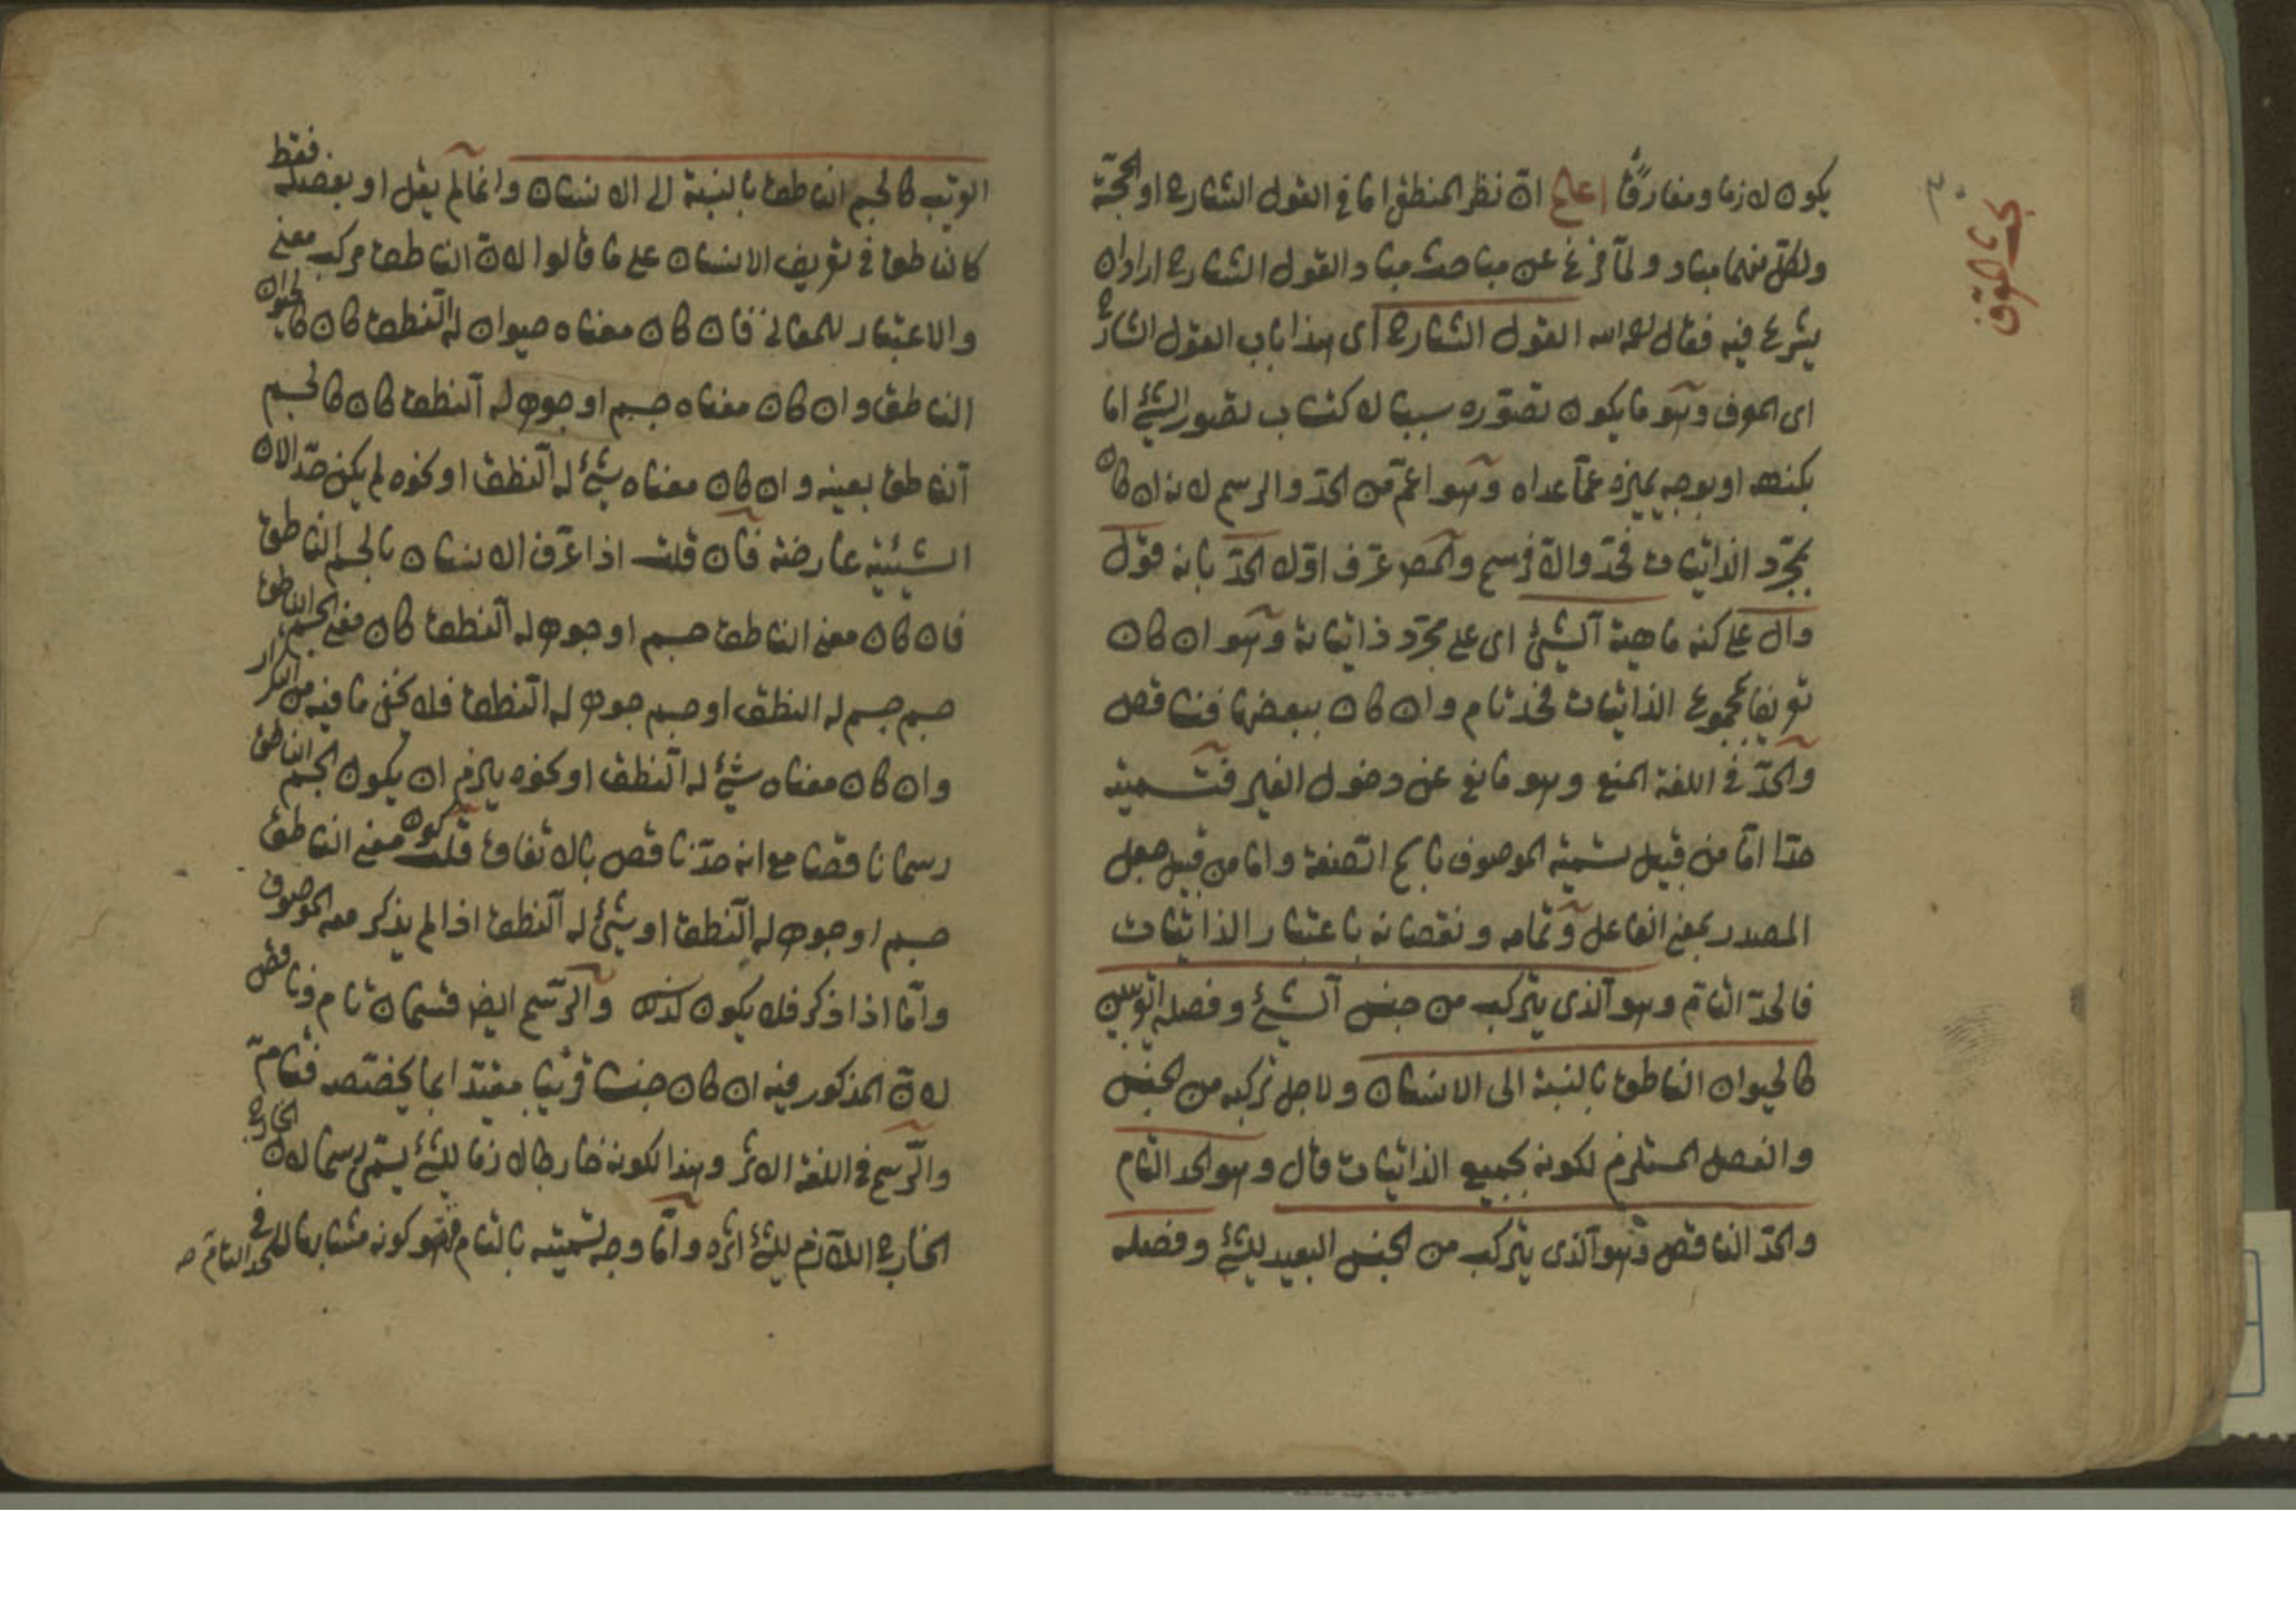 يكون لازما ومفارقا اعلم ان نظر المنطقى اما فى القول الشارح او الحجة
ولكل منهما مباد ولما فرغ عن مباحث مباد القول الشارح اراد ان
يشرع فيه فقال رحمه الله القول الشارح اى هذا باب القول الشارح
اى المعرف وهو ما يكون تصوره سببا لاكتساب تصور الشئ اما
بكنهه او بوجه يميزه عما عداه وهو اعم من الحد والرسم لانه ان كان
بمجرد الذاتيات فحد والا فرسم والمص عرف اولا الحد بانه قول
دال على كنه ماهية الشئ اى على مجرد ذاتياته وهو ان كان
تعريفا بمجموع الذاتيات فحد تام وان كان ببعضها فناقص
والحد فى اللغة المنع وهو مانع عن دخول الغير فتسميته
حدا اما من قبيل تسمية الموصوف باسم الصنعة واما من قبيل جعل
المصدر بمعنى الفاعل وتمامه ونقصانه باعتبار الذاتيات
فالحد التام وهو الذى يتركب من جنس الشئ وفصله القريبين
كالحيوان الناطق بالنسبة الى الانسان ولاجل تركبه من الجنس
والفصل المستلزم لكونه بجميع الذاتيات قال وهو الحد التام
والحد الناقص وهو الذى يتركب من الجنس البعيد للشئ وفصله
بحث المعرف
٣٠
القريب كالجسم الناطق بالنسبة الى الانسان وانما لم يقل او بفصله فقط
كالناطق فى تعريف الانسان على ما قالوا لان الناطق مركب معنى
والاعتبار للمعانى فان كان معناه حيوان له النطق كان كالحيوان
الناطق وان كان معناه جسم او جوهر له النطق كان كالجسم
الناطق بعينه وان كان معناه شئ له النطق او نحوه لم يكن حدا لان
الشيئية عارضة فان قلت اذا عرف الانسان بالجسم الناطق
فان كان معنى الناطق جسم او جوهر له النطق كان معنى الجسم الناطق
جسم جسم له النطق او جسم جوهر له النطق فلا يخفى ما فيه من التكرار
وان كان معناه شئ له النطق او نحوه يلزم ان يكون الجسم الناطق
رسما ناقصا مع انه حد ناقص بالاتفاق قلت كون معنى الناطق
جسم او جوهر له النطق او شئ له النطق اذا لم يذكر معه الموصوف
واما اذا ذكر فلا يكون كذلك والرسم ايضا قسمان تام وناقص
لان المذكور فيه ان كان جنسا قريبا مقيدا بما يختصه فتام
والرسم فى اللغة الاثر وهذا لكونه خارجا لازما للشئ يسمى رسما لان الخارج
الخارج اللازم للشئ اثره واما وجه تسميته بالتام فهو كونه مشابها للحد التام فى